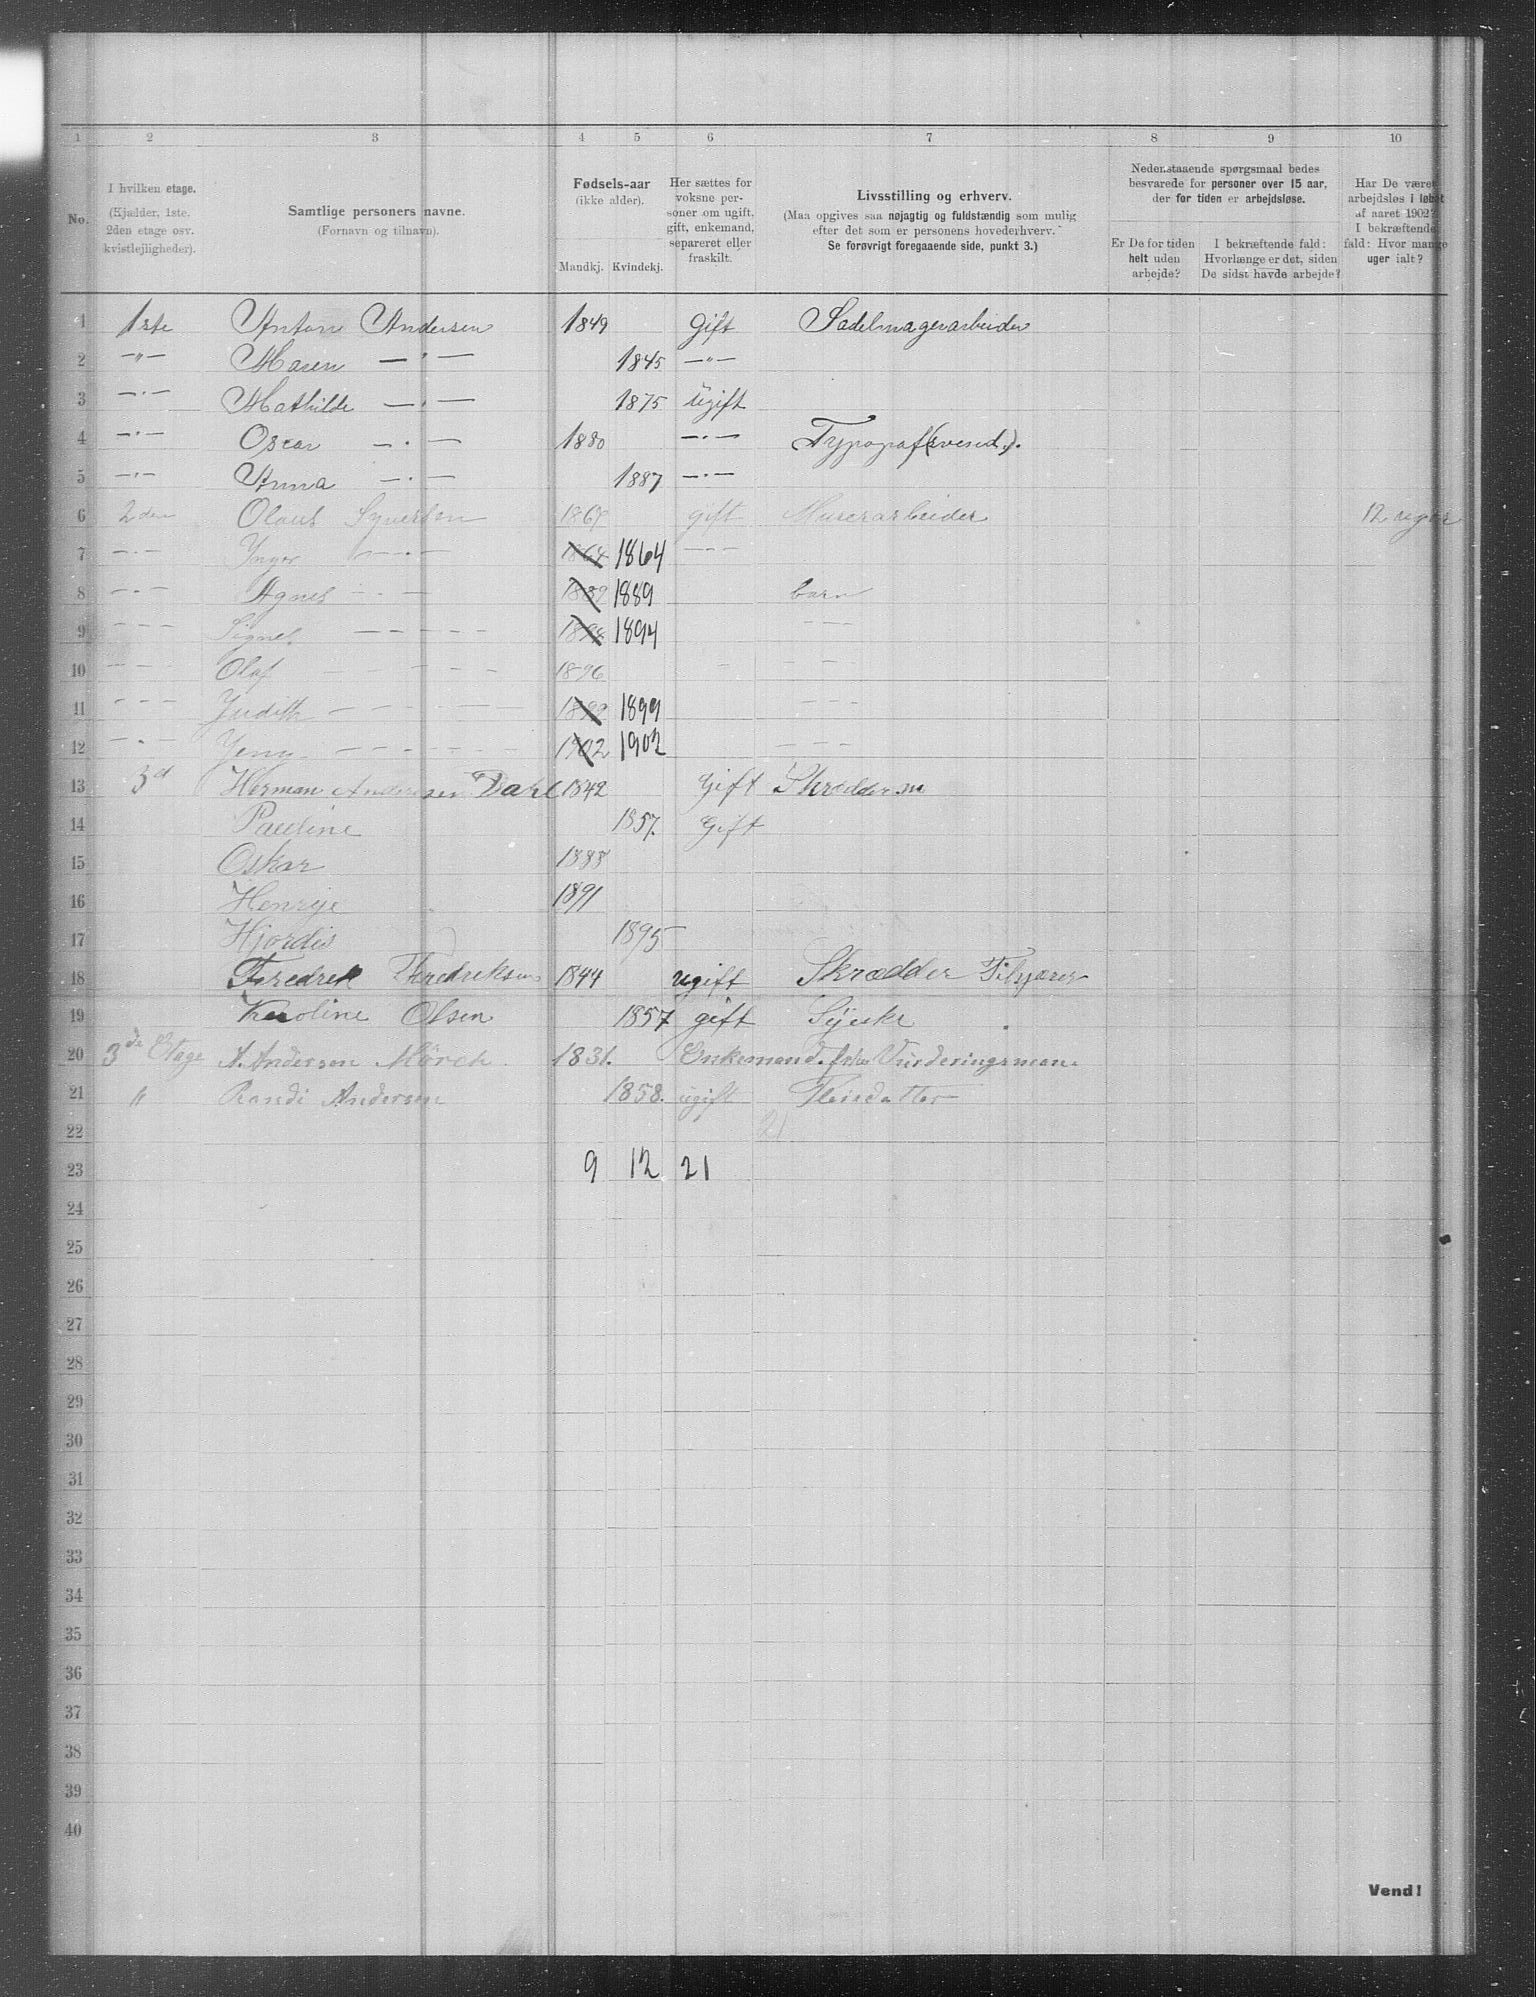 1 2 3 4 5 6 7 8 9 10
No.
I hvilken etage. (Kjælder, 1ste. 2den etage osv. kvistlejligheder).
Samtlige personers navne. (Fornavn og tilnavn).
Fødsels-aar (ikke alder). Mandkj. Kvindekj.
Her sættes for voksne personer om ugift, gift, enkemand, separeret eller fraskilt.
Livsstilling og erhverv. (Maa opgives saa nøjagtig og fuldstændig som mulig efter det som er personens hovederhverv. Se forøvrigt foregaaende side, punkt 3.)
Nedenstaaende spørgsmaal bedes besvarede for personer over 15 aar, der for tiden er arbejdsløse.
Er De for tiden helt uden arbejde?
I bekræftende fald: Hvorlænge er det, siden De sidst havde arbejde?
Har De været arbejdsløs i løbet af aaret 1902? I bekræftende fald: Hvor mange uger ialt?
1 1ste Anton Andersen 1849 Gift Sadelmagerarbeider
2 —"— Maren —"— 1845 —"—
3 —"— Mathilde —"— 1875 ugift
4 —"— Oscar —"— 1880 —"— Typograf
5 —"— Anna —"— 1887 —"—
6 2den Olaus Syvertsen gift Murerarbeider 12 uger
7 —"— Inger —"— 1864 1864 — — —
8 —"— Agnes —"— 1889 1889 barn
9 — — — Signe — — — 1894 1894 — — —
10 — — — Olaf — — — 1896 — — —
11 — — — Judith — — — 1899 1899 — — —
12 —"— Jenny — — — 1902 1902 — — —
13 3d Herman Andersen Dahl 1842 Gift Skrædder m
14 Pauline 1857. Gift
15 Oskar 1888
16 Henrye 1891
17 Hjordis 1895
18 Fredrik Fredriksen 1844 ugift Skrædder Tilskjærer
19 Karoline Olsen 1857 gift Syerske
20 3de Etage A. Andersen Mörch 1831. Enkemand. Vurderingsman.
21 " Randi Andersen 1858. ugift Pleiedatter
22 21
23 9 12 21
24
25
26
27
28
29
30
31
32
33
34
35
36
37
38
39
40
Vend!